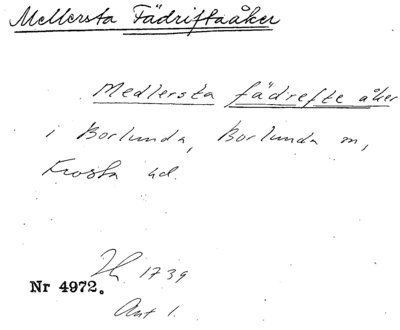 Mellersta Fädriftaåker
Medlersta fädrefte åker
i Borlunda, Borlunda sn,
Frosta hd.
1739
Nr 4972.
Akt 1.